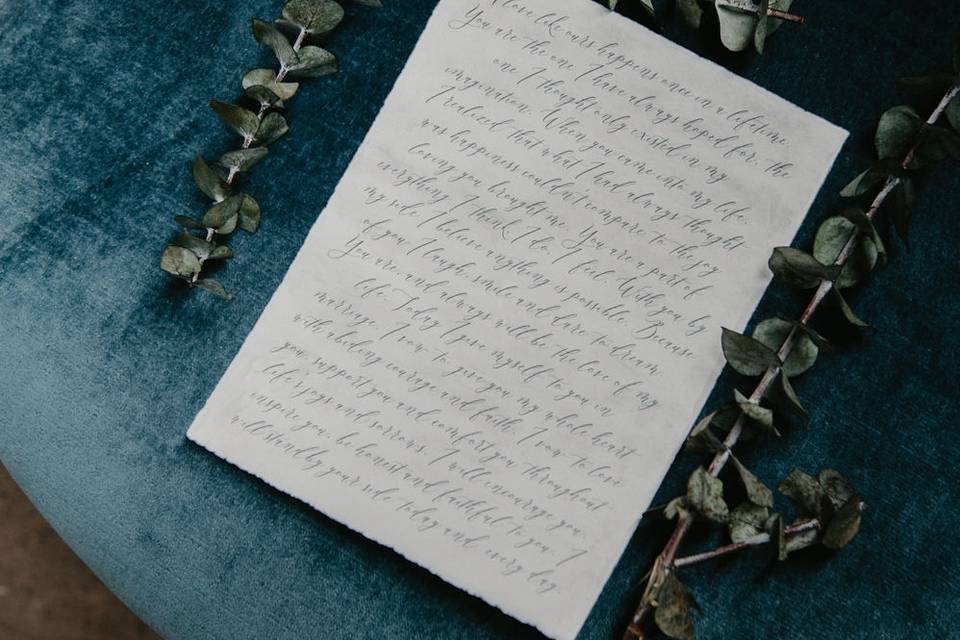 A love like ours happens once in a lifetime.
You are the one I have always hoped for, the
one I thought only existed in my
imagination. When you came into my life,
I realized that what I had always thought
was happiness couldn't compare to the joy
loving you brought me. You are a part of
everything I think, I do, I feel. With you by
my side I believe anything is possible. Because
of you, I laugh, smile and dare to dream.
You are, and always will be the love of my
life. Today I give myself to you in
marriage. I vow to give you my whole heart
with abelong courage and faith. I vow to love
you, support you and comfort you throughout
life's joys and sorrows. I will encourage you,
inspire you, be honest and faithful to you. I
will stand by your side today and every day